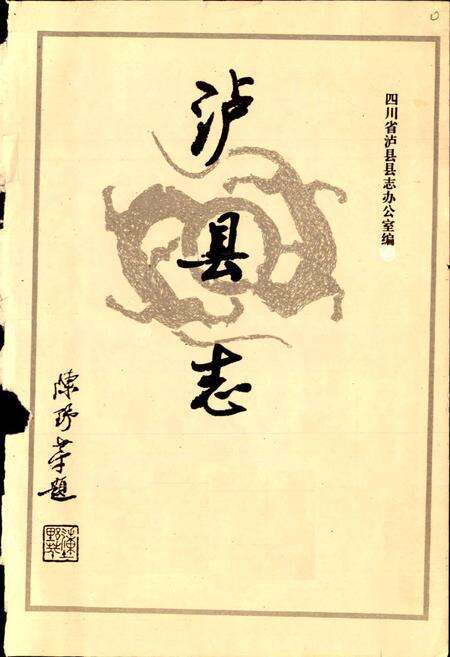 四川省泸县县志办公室编
泸县志
陈野苹题